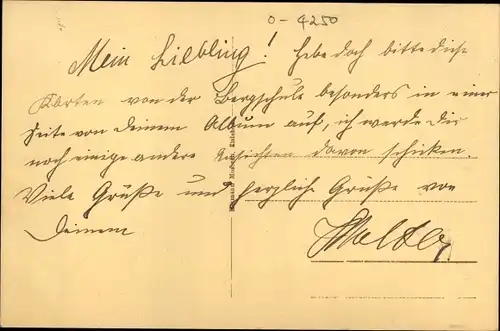 0-4250
Mein Liebling! Hebe doch bitte diese
Karten von der Bergschule besonders in einer
Seite von deinem Album auf, ich werde Dir
noch einige andere Ansichten davon schicken.
Viele Grüße und herzliche Grüße von
Deinem
Walter